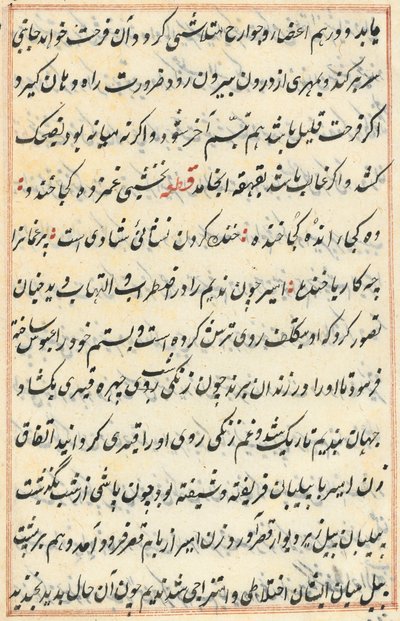 یابد و در هم اعضا و جوارح متلاشی کرد و آن فرحت خواهد جانبی
سر بر کند و بهری از درون بیرون رود و ضرورت راه دهان کیرد
اکر فرحت قلیل باشد هم بتبسم آخر شود و اکر نه میانه بود بضحک
کشد و اکر غالب باشد بقهقهه انجامد قطعه نخشبی غمزده کجا خندد
ده کجا، انده کجا خنده خنده کردن نشانی شادی است پر غمانرا
چه کار با خنده امیر چون ندیم را در اضطراب و التهاب دید چنان
تصور کرد که او بتکلف روی ترش کرده است و بستم خود را عبوس ساخته
فرمود تا او را در زندان برند چون زنکی شب روی بچهره قیری بکشاد
جهان بندیم تاریک شد و غم زنکی روی او را قیری کردانید اتفاق
زن امیر با پیلبان فریفته و شیفته بود چون پاسی از شب بگذشت
پیلبان پیل زیر دیوار قصر آورد زن امیر از بام قصر فرود آمد و هم بر پشت
پیل میان ایشان اختلاطی و امتزاجی شد ندیم چون آن حال بدید بخندید